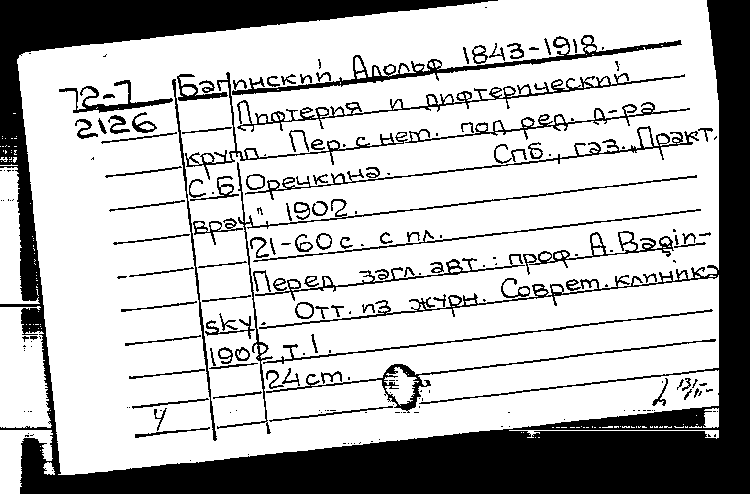 72-7 Багинский, Адольф 1843-1918.
2126 Дифтерия и дифтерический
крупп. Пер. с нем. под ред. д-ра
С.Б. Оречкина. Спб., газ. "Практ.
врач", 1902.
21-60 с. с ил.
Перед загл. авт.: проф. A. Bagin-
sky. Отт. из журн. Соврем. клиника
1902, т. 1.
24 cm.